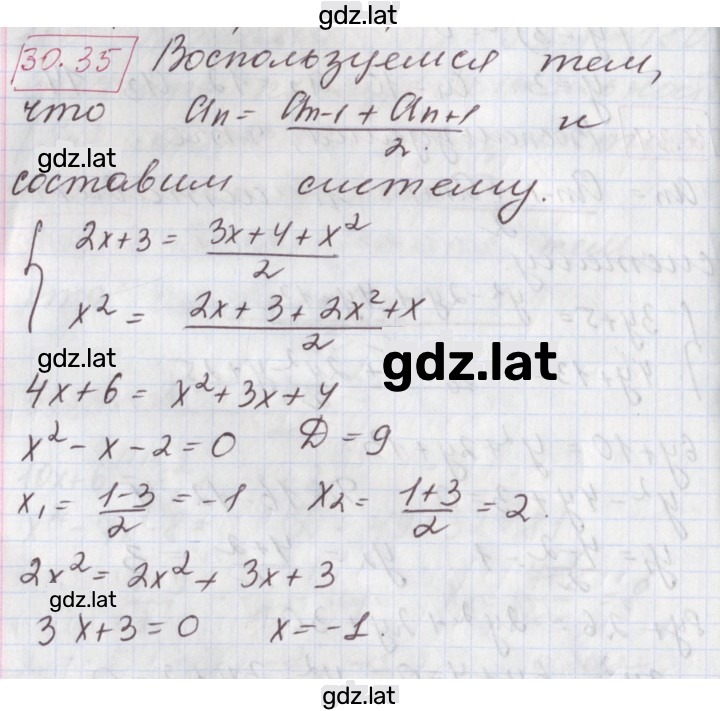 gdz.lat
30.35 Воспользуемся тем,
что an = (an-1 + an+1)/2 и
gdz.lat
составим систему.
{ 2x+3 = (3x+4+x²)/2
x² = (2x+3+2x²+x)/2
gdz.lat
gdz.lat
4x+6 = x²+3x+4
x²-x-2=0 D=9
x₁ = (1-3)/2 = -1 x₂ = (1+3)/2 = 2.
2x² = 2x²+3x+3
gdz.lat
3x+3=0 x=-1.
gdz.lat